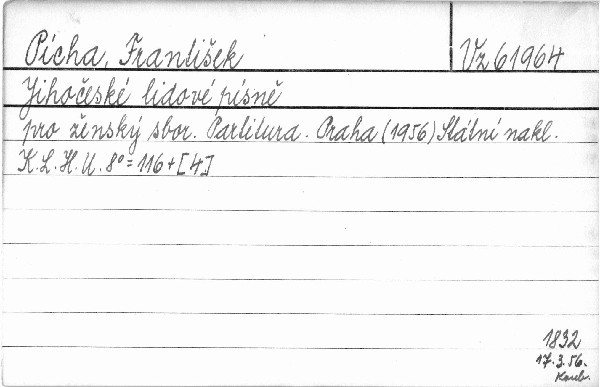 Pícha, František
Vz 61964
Jihočeské lidové písně
pro ženský sbor. Partitura. Praha (1956) Státní nakl.
K.L.H.U. 8° = 116 + [4]
1832
17.3.56.